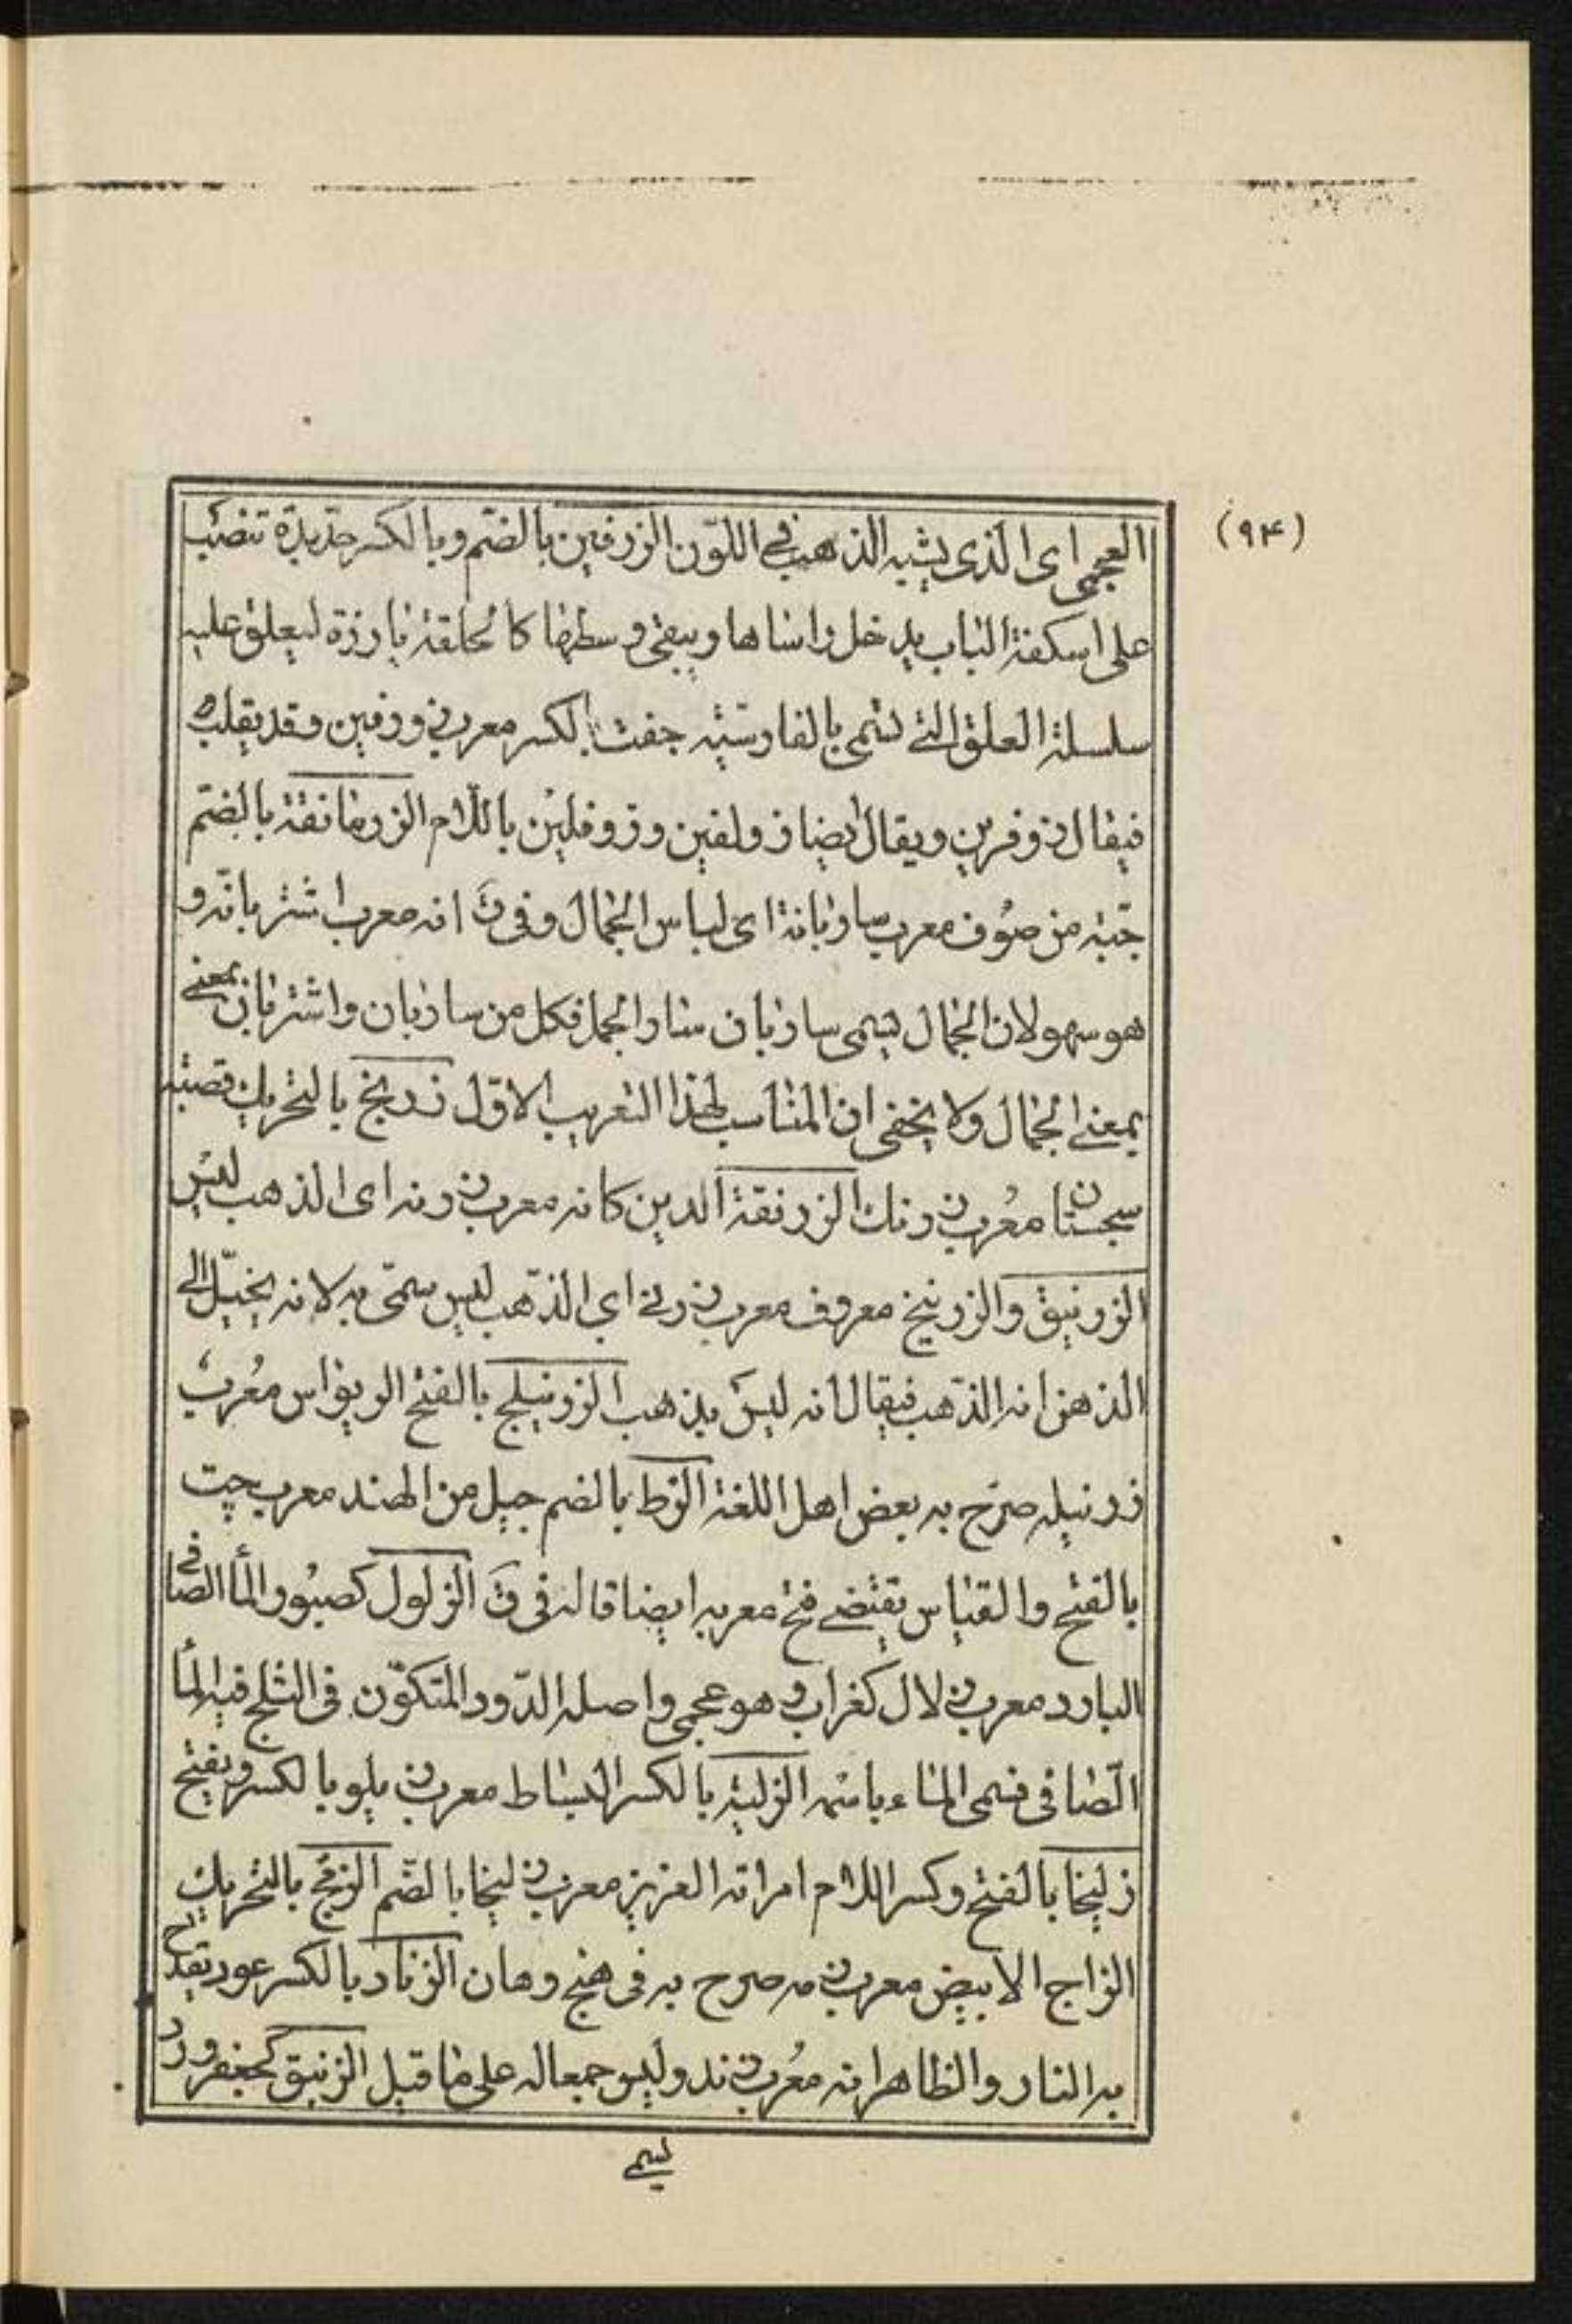 (۹۴)
العجمی ای الذی یشبه الذهب فی اللّون الزرفین بالضّم و بالکسر حدیدة تنصب
علی اسکفة الباب یدخل راساها و یبقی وسطها کالحلقة بارزة لیعلق علیه
سلسلة العلق التی تسمی بالفارسیّة جفت بالکسر معرب زورفین و قد یقلب
فیقال زوفرین و یقال ایضا زولفین و زوفلین باللام الزرمانقة بالضّم
جبّة من صوف معرب ساربانة ای لباس الجمال و فی ق انه معرب اشتربانه و
هو سهو لان الجمال یسمی ساربان سار الجمل فکل من ساربان و اشتربان بمعنی
بمعنی الجمال و لا یخفی ان المناسب لهذا التعریب الاوّل زرنج بالتحریک قصبة
سجستان معرب زرنک الزرنقة الدین کانه معرب زرنه ای الذهب لیس
الزرنیق و الزرنیخ معروف معرب زرنی ای الذّهب لیس سمّی به لانه یخیّل الی
الذهن انه الذّهب فیقال انه لیس بذهب الزرنیلج بالفتح الریواس معرب
زرنیله صرّح به بعض اهل اللغة الزط بالضم جیل من الهند معرب جت
بالفتح و القیاس یقتضی فتح معربه ایضا قاله فی ق الزلول کصبور الماء الصافی
البارد معرب زلال کغراب و هو عجمی و اصله الدّود المتکوّن فی الثلج فیه الماء
الصّافی فسمی الماء باسمه الزلیة بالکسر البساط معرب زیلو بالکسر و یفتح
زلیخا بالفتح و کسر اللام امراة العزیز معرب زلیخا بالضّم الزمج بالتحریک
الزاج الابیض معرب زمه صرح به فی هنج و هان الزناد بالکسر عود یقدح
به النار و الظاهر انه معرب زند و لیس جمعا له علی ما قیل الزنبق کجعفر ورد
یسمی